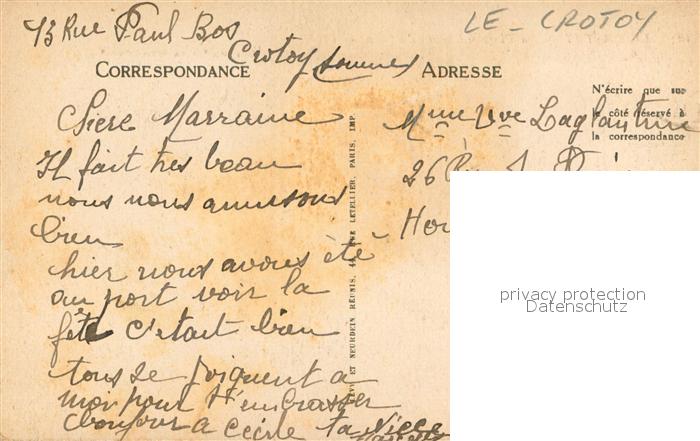 13 Rue Paul Bos
Crotoy Somme
LE - CROTOY
CORRESPONDANCE
ADRESSE
N'écrire que sur
le côté réservé à
la correspondance
Chere Marraine
Il fait tres beau
nous nous amusons
bien
hier nous avons été
au port voir la
fête c'etait bien
tous se joignent a
moi pour t'embrasser
bonjour a Cecile ta Niece
Mme Vve Laglantine
26
LEVY ET NEURDEIN RÉUNIS, 44, RUE LETELLIER, PARIS, IMP.
privacy protection
Datenschutz